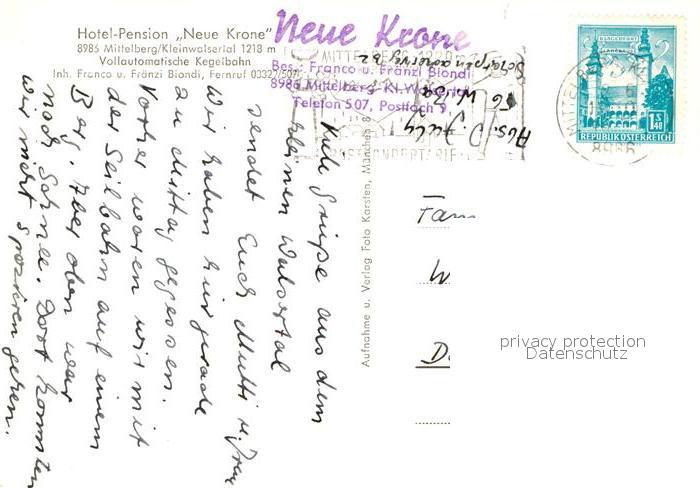 Hotel-Pension „Neue Krone"
8986 Mittelberg/Kleinwalsertal 1218 m
Vollautomatische Kegelbahn
Inh. Franco u. Fränzi Biondi, Fernruf 0332/507
Neue Krone
Bes.: Franco u. Fränzl Biondi
8986 Mittelberg, Kl. Walsertal
Telefon 507, Postfach 9
Abs. D.
Aufnahme u. Verlag Foto Karsten, München 8
KLAGENFURT
1S40
REPUBLIK ÖSTERREICH
MITTELBERG
8986
Kille Grüße aus dem
kleinen Walsertal
sendet Euch Mutti u.
Wir haben hier gerade
zu Mittag gegessen.
Vorher waren wir mit
der Seilbahn auf einem
Berg. Aber oben war
noch Schnee. Dort konnten
wir nicht spazieren gehen.
Fam
W
D.
privacy protection
Datenschutz